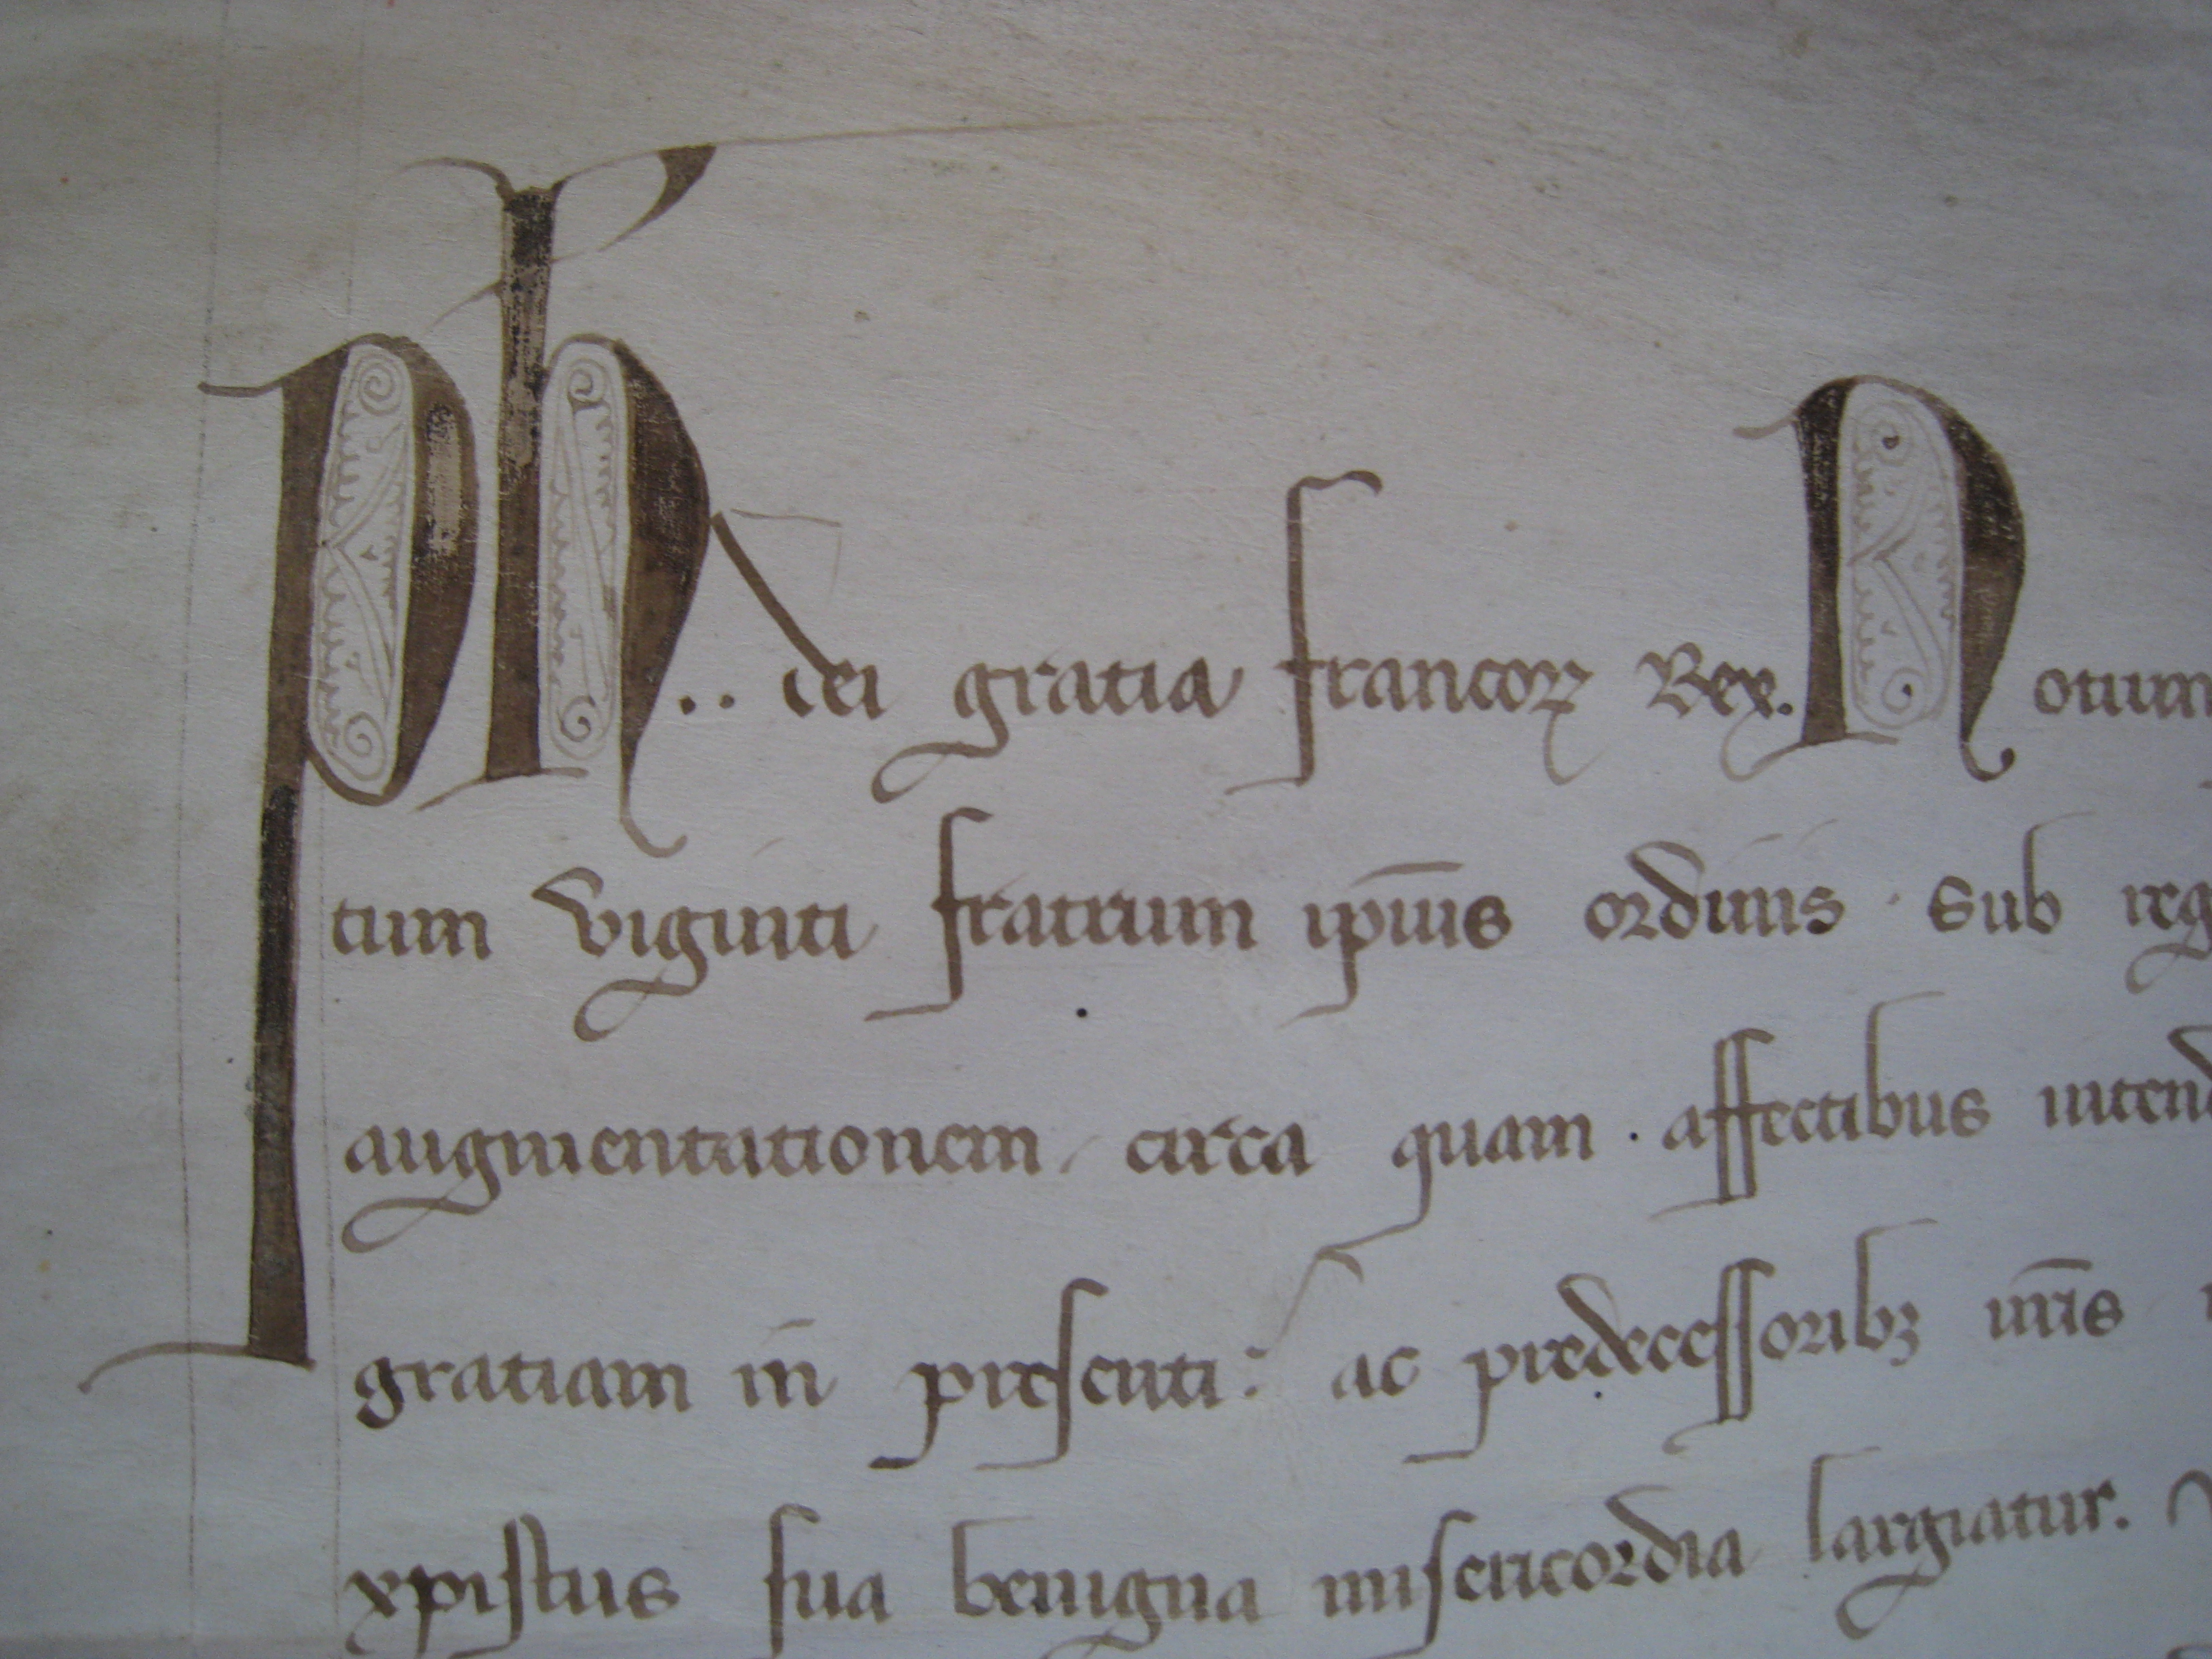 Ph.. dei gratia francoꝝ Rex. Notum
tum viginti fratrum ip̄ius ordinis . sub
augmentationem circa quam . affectibus
gratiam in presenti : ac predecessoribꝫ nr̄is
xpistus sua benigna misericordia largiatur.